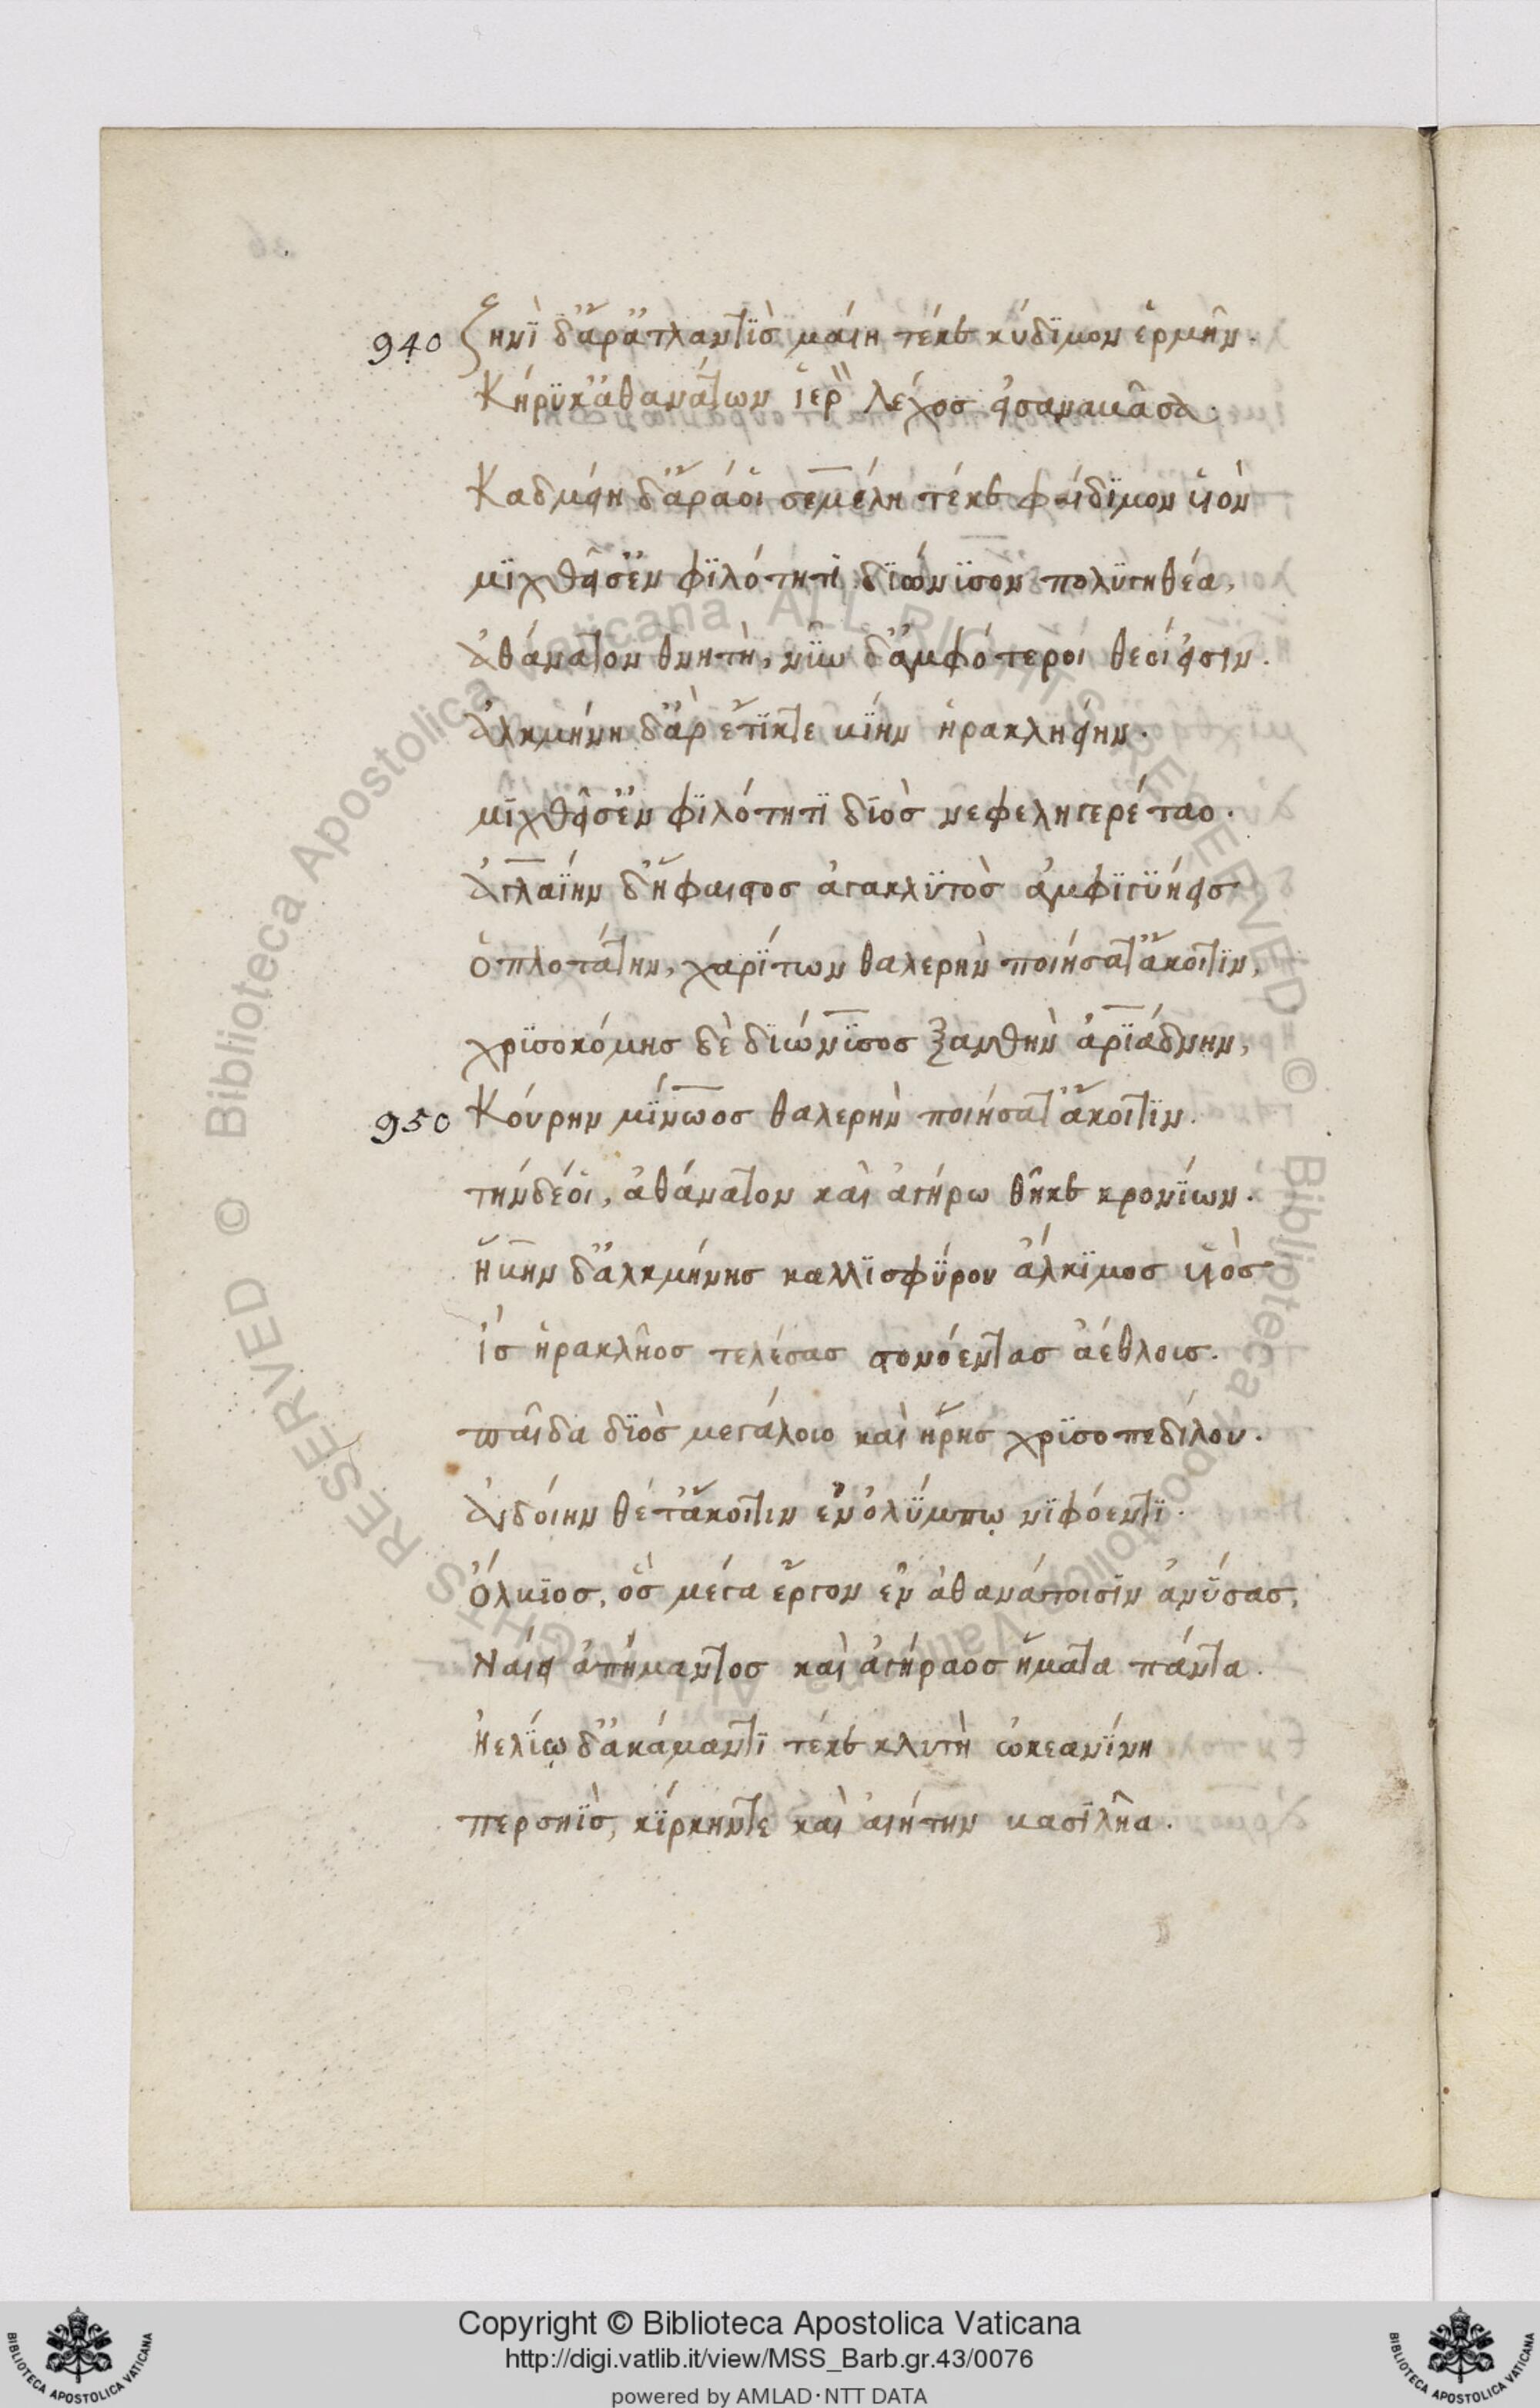 940 ζηνὶ δ' ἄρ' ἀτλαντὶσ μαίη τέκε κύδϊμον ἑρμῆν.
Κήρϋκ' ἀθανάτων ἱερ" λέχοσ εἰσαναβᾶσα.
Καδμείη δ' ἄρά οἱ σεμέλη τέκε φαίδϊμον υἱὸν
μϊχθεῖσ' ἐν φϊλότητϊ, δϊώνϋσον πολϋγηθέα,
ἀθάνατον θνητὴ, νῦν δ' ἀμφότεροι θεοί εἰσιν.
Ἀλκμήνη δ' ἂρ ἔτϊκτε βίην ἡρακληείην.
μϊχθεῖσ' ἐν φϊλότητϊ δϊὸσ νεφεληγερέταο.
ἀγλαΐην δ' ἥφαιστοσ ἀγακλϋτὸσ ἀμφϊγϋήεισ
ὁπλοτάτην, χαρΐτων θαλερὴν ποιήσατ' ἄκοιτϊν,
χρϋσοκόμησ δὲ δϊώνϋσοσ ξανθὴν ἀρϊάδνην,
950 Κούρην μίνωοσ θαλερὴν ποιήσατ' ἄκοιτϊν.
τὴν δέ οἱ, ἀθάνατον καὶ ἀγήρω θῆκε κρονΐων.
ἥβην δ' ἀλκμήνησ καλλϊσφύρου ἄλκϊμοσ υἱὸσ
ἲσ ἡρακλῆοσ τελέσασ στονόεντασ ἀέθλουσ.
παῖδα δϊὸσ μεγάλοιο καὶ ἥρησ χρϋσοπεδίλου.
Αἰδοίην θέτ' ἄκοιτιν ἐν ὀλύμπῳ νϊφόεντϊ.
Ὄλβϊοσ, ὃσ μέγα ἔργον ἐν ἀθανάτοισϊν ἀνύσασ,
Ναίει ἀπήμαντοσ καὶ ἀγήραοσ ἤματα πάντα.
Ἠελΐῳ δ' ἀκάμαντϊ τέκε κλυτὴ ὠκεανΐνη
περσηῒσ, κΐρκην τε καὶ αἰήτην βασϊλῆα.
Copyright © Biblioteca Apostolica Vaticana
http://digi.vatlib.it/view/MSS_Barb.gr.43/0076
powered by AMLAD·NTT DATA